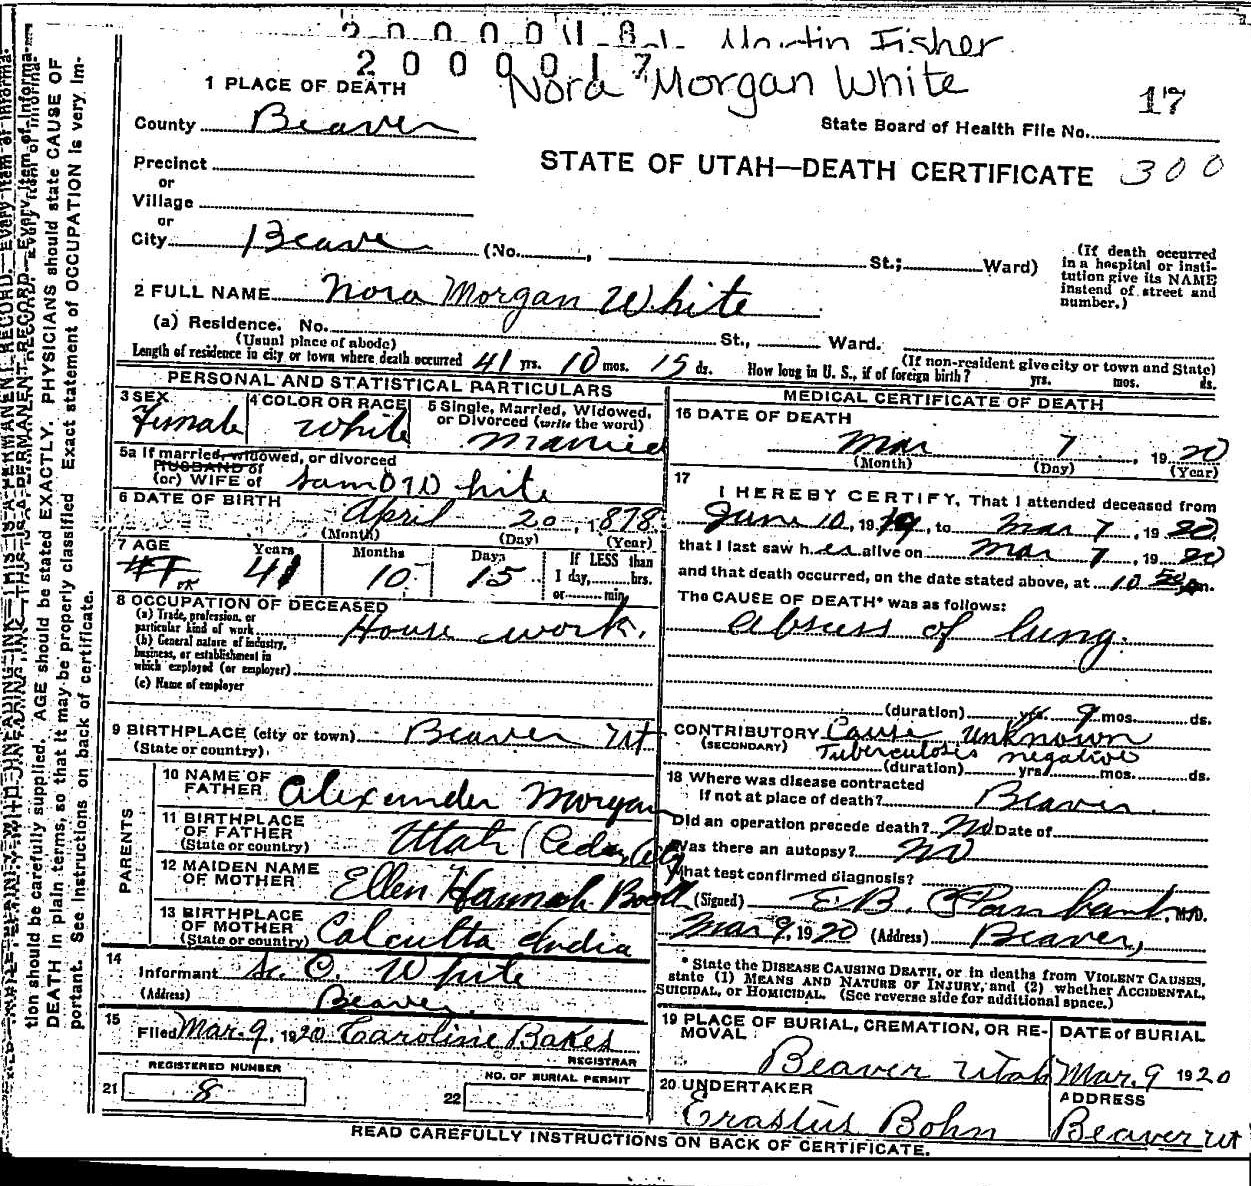 2 0 0 0 0 1 8 1 Martin Fisher
2 0 0 0 0 1 7 Nora Morgan White
1 PLACE OF DEATH 17
County Beaver State Board of Health File No.
Precinct STATE OF UTAH—DEATH CERTIFICATE 300
or
Village
or
City Beaver (No. , St.; Ward)
(If death occurred
in a hospital or insti-
tution give its NAME
instead of street and
number.)
2 FULL NAME Nora Morgan White
(a) Residence. No. St., Ward.
(Usual place of abode) (If non-resident give city or town and State)
Length of residence in city or town where death occurred 41 yrs. 10 mos. 15 ds. How long in U. S., if of foreign birth? yrs. mos. ds.
PERSONAL AND STATISTICAL PARTICULARS
3 SEX
Female
4 COLOR OR RACE
White
5 Single, Married, Widowed,
or Divorced (write the word)
Married
5a If married, widowed, or divorced
HUSBAND of
(or) WIFE of Sam O White
6 DATE OF BIRTH
April 20, 1878
(Month) (Day) (Year)
7 AGE Years Months Days If LESS than
41 10 15 1 day, hrs.
or min.
8 OCCUPATION OF DECEASED
(a) Trade, profession, or
particular kind of work House work.
(b) General nature of industry,
business, or establishment in
which employed (or employer)
(c) Name of employer
9 BIRTHPLACE (city or town) Beaver Ut
(State or country)
PARENTS
10 NAME OF
FATHER Alexander Morgan
11 BIRTHPLACE
OF FATHER
(State or country) Utah (Cedar City
12 MAIDEN NAME
OF MOTHER Ellen Hannah
13 BIRTHPLACE
OF MOTHER
(State or country) Calcutta India
14
Informant S. O. White
(Address) Beaver
15
Filed Mar. 9, 1920 Caroline Bakes
REGISTRAR
REGISTERED NUMBER
21 8
NO. OF BURIAL PERMIT
22
MEDICAL CERTIFICATE OF DEATH
16 DATE OF DEATH
Mar 7, 1920
(Month) (Day) (Year)
17
I HEREBY CERTIFY, That I attended deceased from
June 10, 1919, to Mar 7, 1920
that I last saw her alive on Mar 7, 1920
and that death occurred, on the date stated above, at 10 50 m.
The CAUSE OF DEATH* was as follows:
Abscess of lung.
(duration) yrs. 9 mos. ds.
CONTRIBUTORY Cause Unknown
(SECONDARY) Tuberculosis negative
(duration) yrs. mos. ds.
18 Where was disease contracted
if not at place of death? Beaver.
Did an operation precede death? No Date of
Was there an autopsy? No
What test confirmed diagnosis?
(Signed) E.B. , M.D.
Mar 9, 1920 (Address) Beaver,
* State the DISEASE CAUSING DEATH, or in deaths from VIOLENT CAUSES,
state (1) MEANS AND NATURE OF INJURY, and (2) whether ACCIDENTAL,
SUICIDAL, OR HOMICIDAL. (See reverse side for additional space.)
19 PLACE OF BURIAL, CREMATION, OR RE-
MOVAL
Beaver Utah
DATE of BURIAL
Mar. 9 1920
20 UNDERTAKER
Erastus Bohn
ADDRESS
Beaver Ut
READ CAREFULLY INSTRUCTIONS ON BACK OF CERTIFICATE.
tion should be carefully supplied. AGE should be stated EXACTLY. PHYSICIANS should state CAUSE OF
DEATH in plain terms, so that it may be properly classified. Exact statement of OCCUPATION is very im-
portant. See instructions on back of certificate.